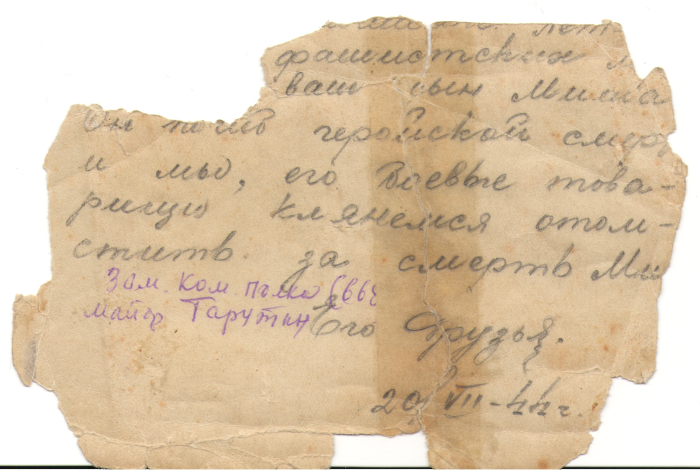 лет
фашистских
ваш сын Миша
Он погиб геройской смер
и мы, его боевые това-
рищи клянемся отом-
стить за смерть Ми
Зам. ком. полка
майор Тарутин
Его друзья.
20/VII-44 г.